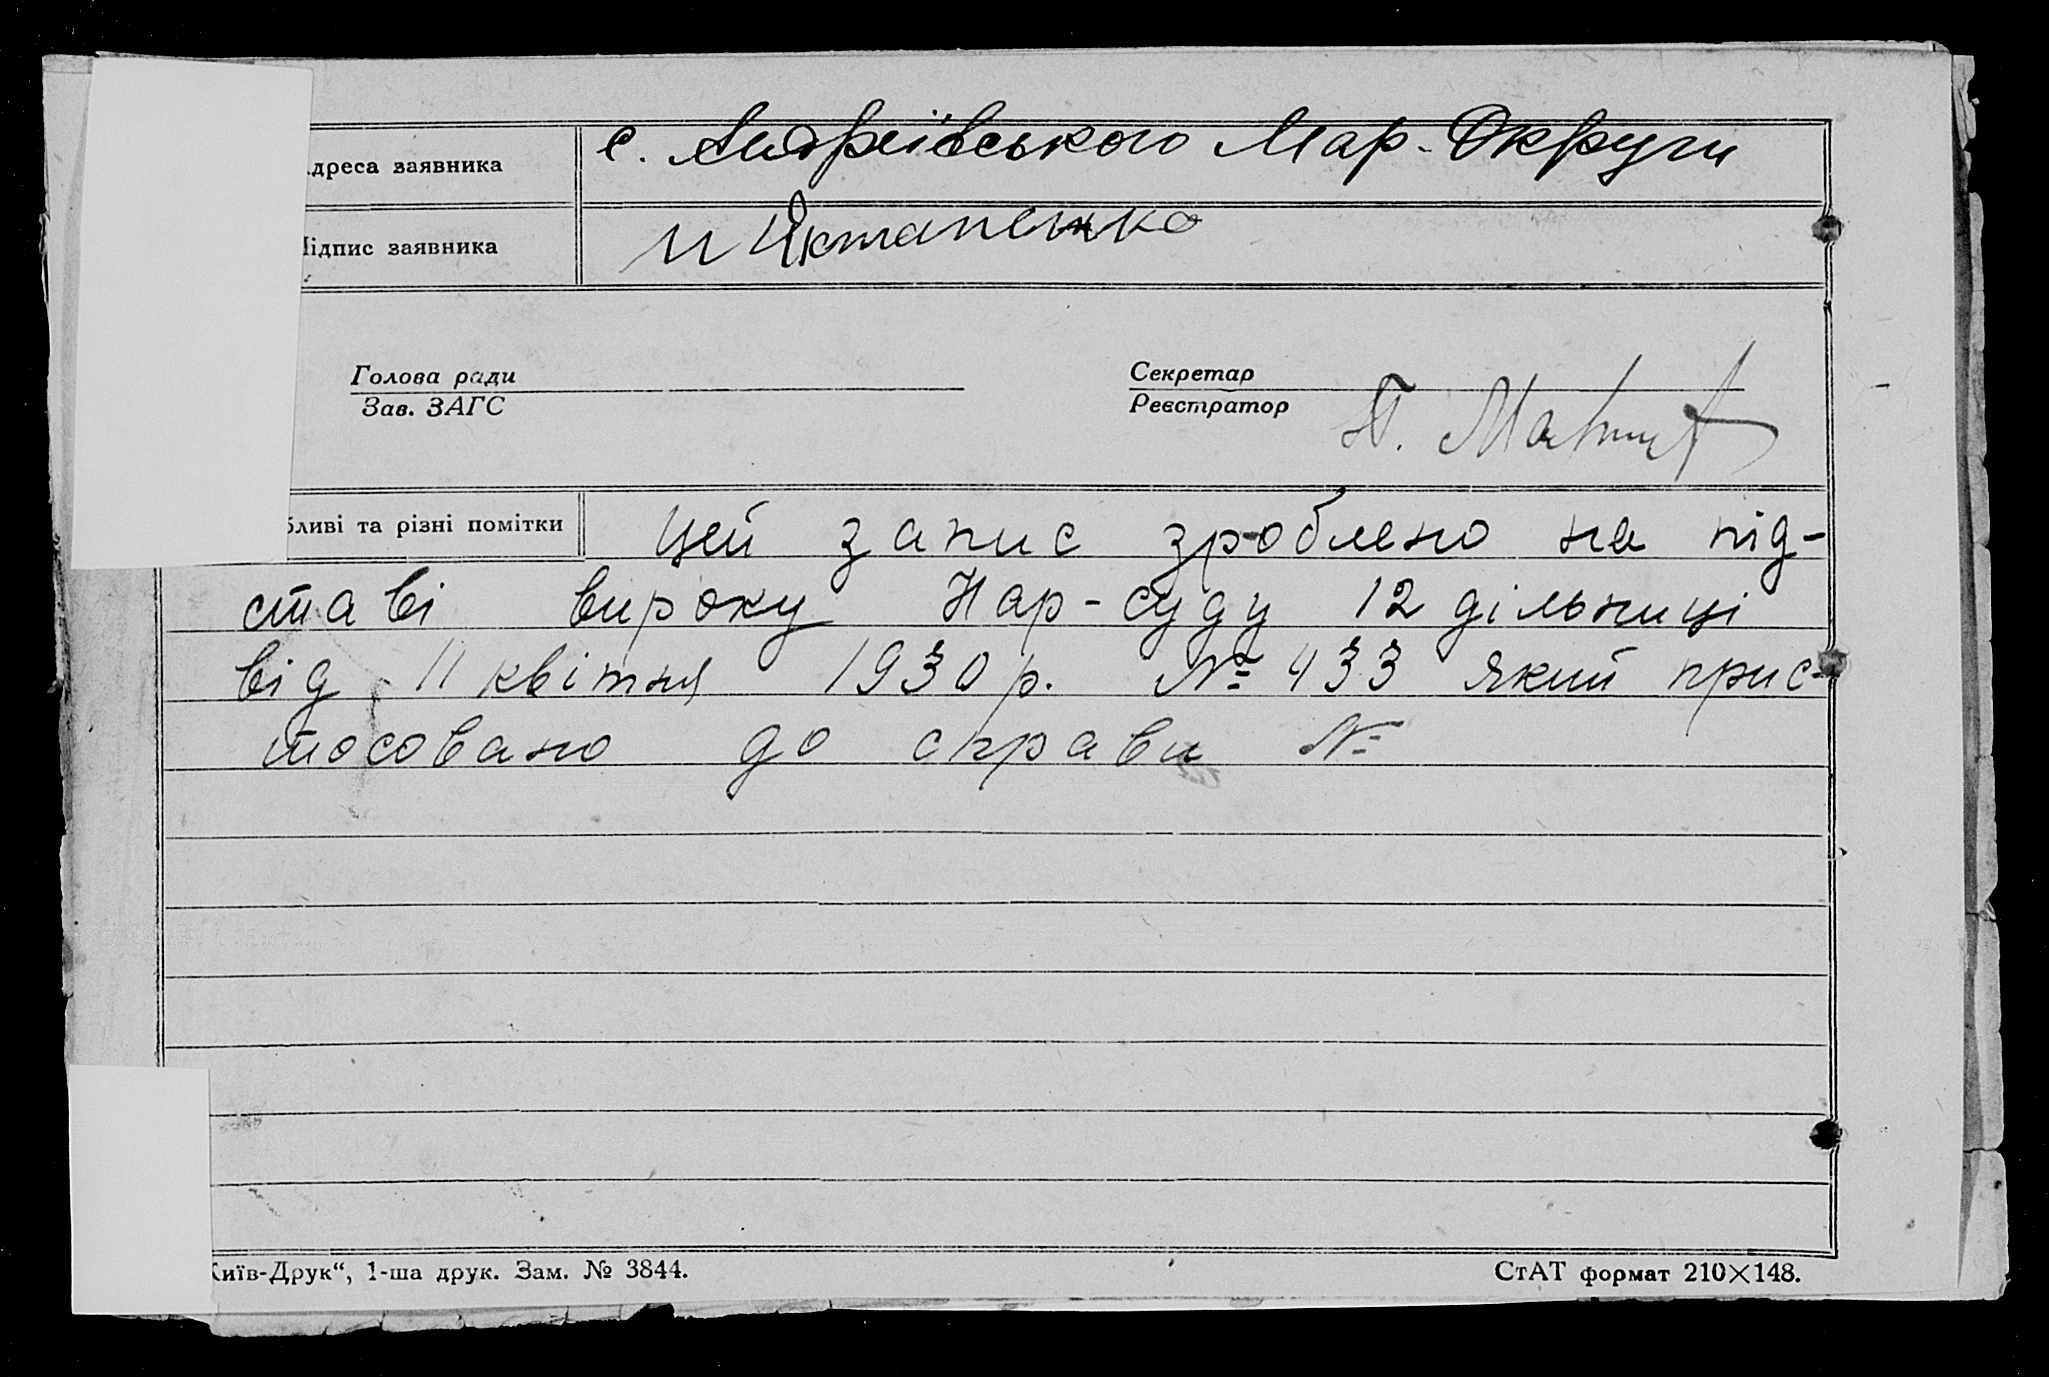 с. Андріївського Мар-Округи
дреса заявника
ідпис заявника
Голова ради
Зав. ЗАГС
Секретар
Реєстратор
бливі та різні помітки
Цей запис зроблено на під-
ставі вироку Нар-суду 12 дільниці
від 11 квітня 1930 р. № 433 який прис-
тосовано до справи №
иїв-Друк“, 1-ша друк. Зам. № 3844.
СтАТ формат 210×148.